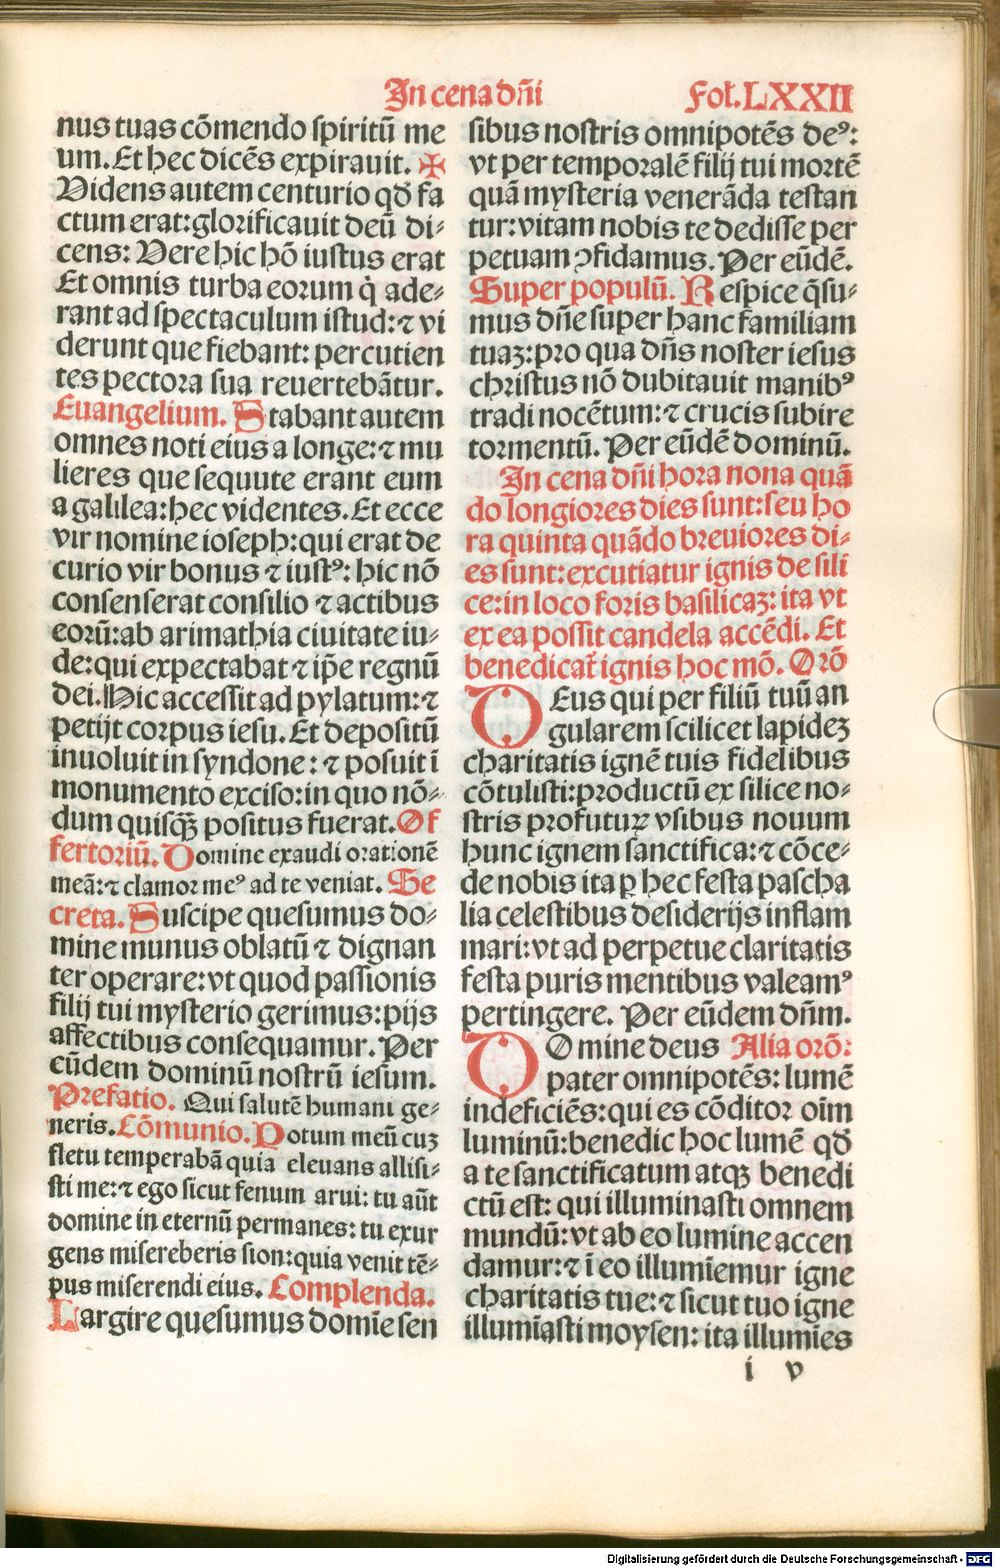 In cena dn̄i
Fol.LXXII
nus tuas cōmendo spiritū me
um. Et hec dicēs expirauit. ✠
Videns autem centurio qd̄ fa
ctum erat: glorificauit deū di⸗
cens: Vere hic hō iustus erat
Et omnis turba eorum q̇ ade⸗
rant ad spectaculum istud: ⁊ vi
derunt que fiebant: percutien
tes pectora sua reuertebātur.
Euangelium. Stabant autem
omnes noti eius a longe: ⁊ mu
lieres que sequute erant eum
a galilea: hec videntes. Et ecce
vir nomine ioseph: qui erat de
curio vir bonus ⁊ iustꝰ: hic nō
consenserat consilio ⁊ actibus
eorū: ab arimathia ciuitate iu⸗
de: qui expectabat ⁊ ip̄e regnū
dei. Hic accessit ad pylatum: ⁊
petijt corpus iesu. Et depositū
inuoluit in syndone: ⁊ posuit ī
monumento exciso: in quo nō⸗
dum quisq̄ꝫ positus fuerat. Of
fertoriū. Domine exaudi orationē
meā: ⁊ clamor meꝰ ad te veniat. Se
creta. Suscipe quesumus do⸗
mine munus oblatū ⁊ dignan
ter operare: vt quod passionis
filij tui mysterio gerimus: pijs
affectibus consequamur. Per
eūdem dominū nostrū iesum.
Prefatio. Qui salutē humani ge⸗
neris. Cōmunio. Potum meū cuꝫ
fletu temperabā quia eleuans allisi⸗
sti me: ⁊ ego sicut fenum arui: tu aūt
domine in eternū permanes: tu exur
gens misereberis sion: quia venit tē⸗
pus miserendi eius. Complenda.
Largire quesumus domīe sen
sibus nostris omnipotēs deꝰ:
vt per temporalē filij tui mortē
quā mysteria venerāda testan
tur: vitam nobis te dedisse per
petuam ↄfidamus. Per eūdē.
Super populū. Respice q̄su⸗
mus dn̄e super hanc familiam
tuaꝫ: pro qua dn̄s noster iesus
christus nō dubitauit manibꝰ
tradi nocētum: ⁊ crucis subire
tormentū. Per eūdē dominū.
In cena dn̄i hora nona quā
do longiores dies sunt: seu ho
ra quinta quādo breuiores di⸗
es sunt: excutiatur ignis de sili
ce: in loco foris basilicaꝫ: ita vt
ex ea possit candela accēdi. Et
benedicat᷑ ignis hoc mō. Orō
DEus qui per filiū tuū an
gularem scilicet lapideꝫ
charitatis ignē tuis fidelibus
cōtulisti: productū ex silice no⸗
stris profuturꝝ vsibus nouum
hunc ignem sanctifica: ⁊ cōce⸗
de nobis ita ꝑ hec festa pascha
lia celestibus desiderijs inflam
mari: vt ad perpetue claritatis
festa puris mentibus valeamꝰ
pertingere. Per eūdem dn̄m.
DOmine deus Alia orō:
pater omnipotēs: lumē
indeficiēs: qui es cōditor oīm
luminū: benedic hoc lumē qd̄
a te sanctificatum atqꝫ benedi
ctū est: qui illuminasti omnem
mundū: vt ab eo lumine accen
damur: ⁊ ī eo illumīemur igne
charitatis tue: ⁊ sicut tuo igne
illumīasti moysen: ita illumīes
i v
Digitalisierung gefördert durch die Deutsche Forschungsgemeinschaft - DFG